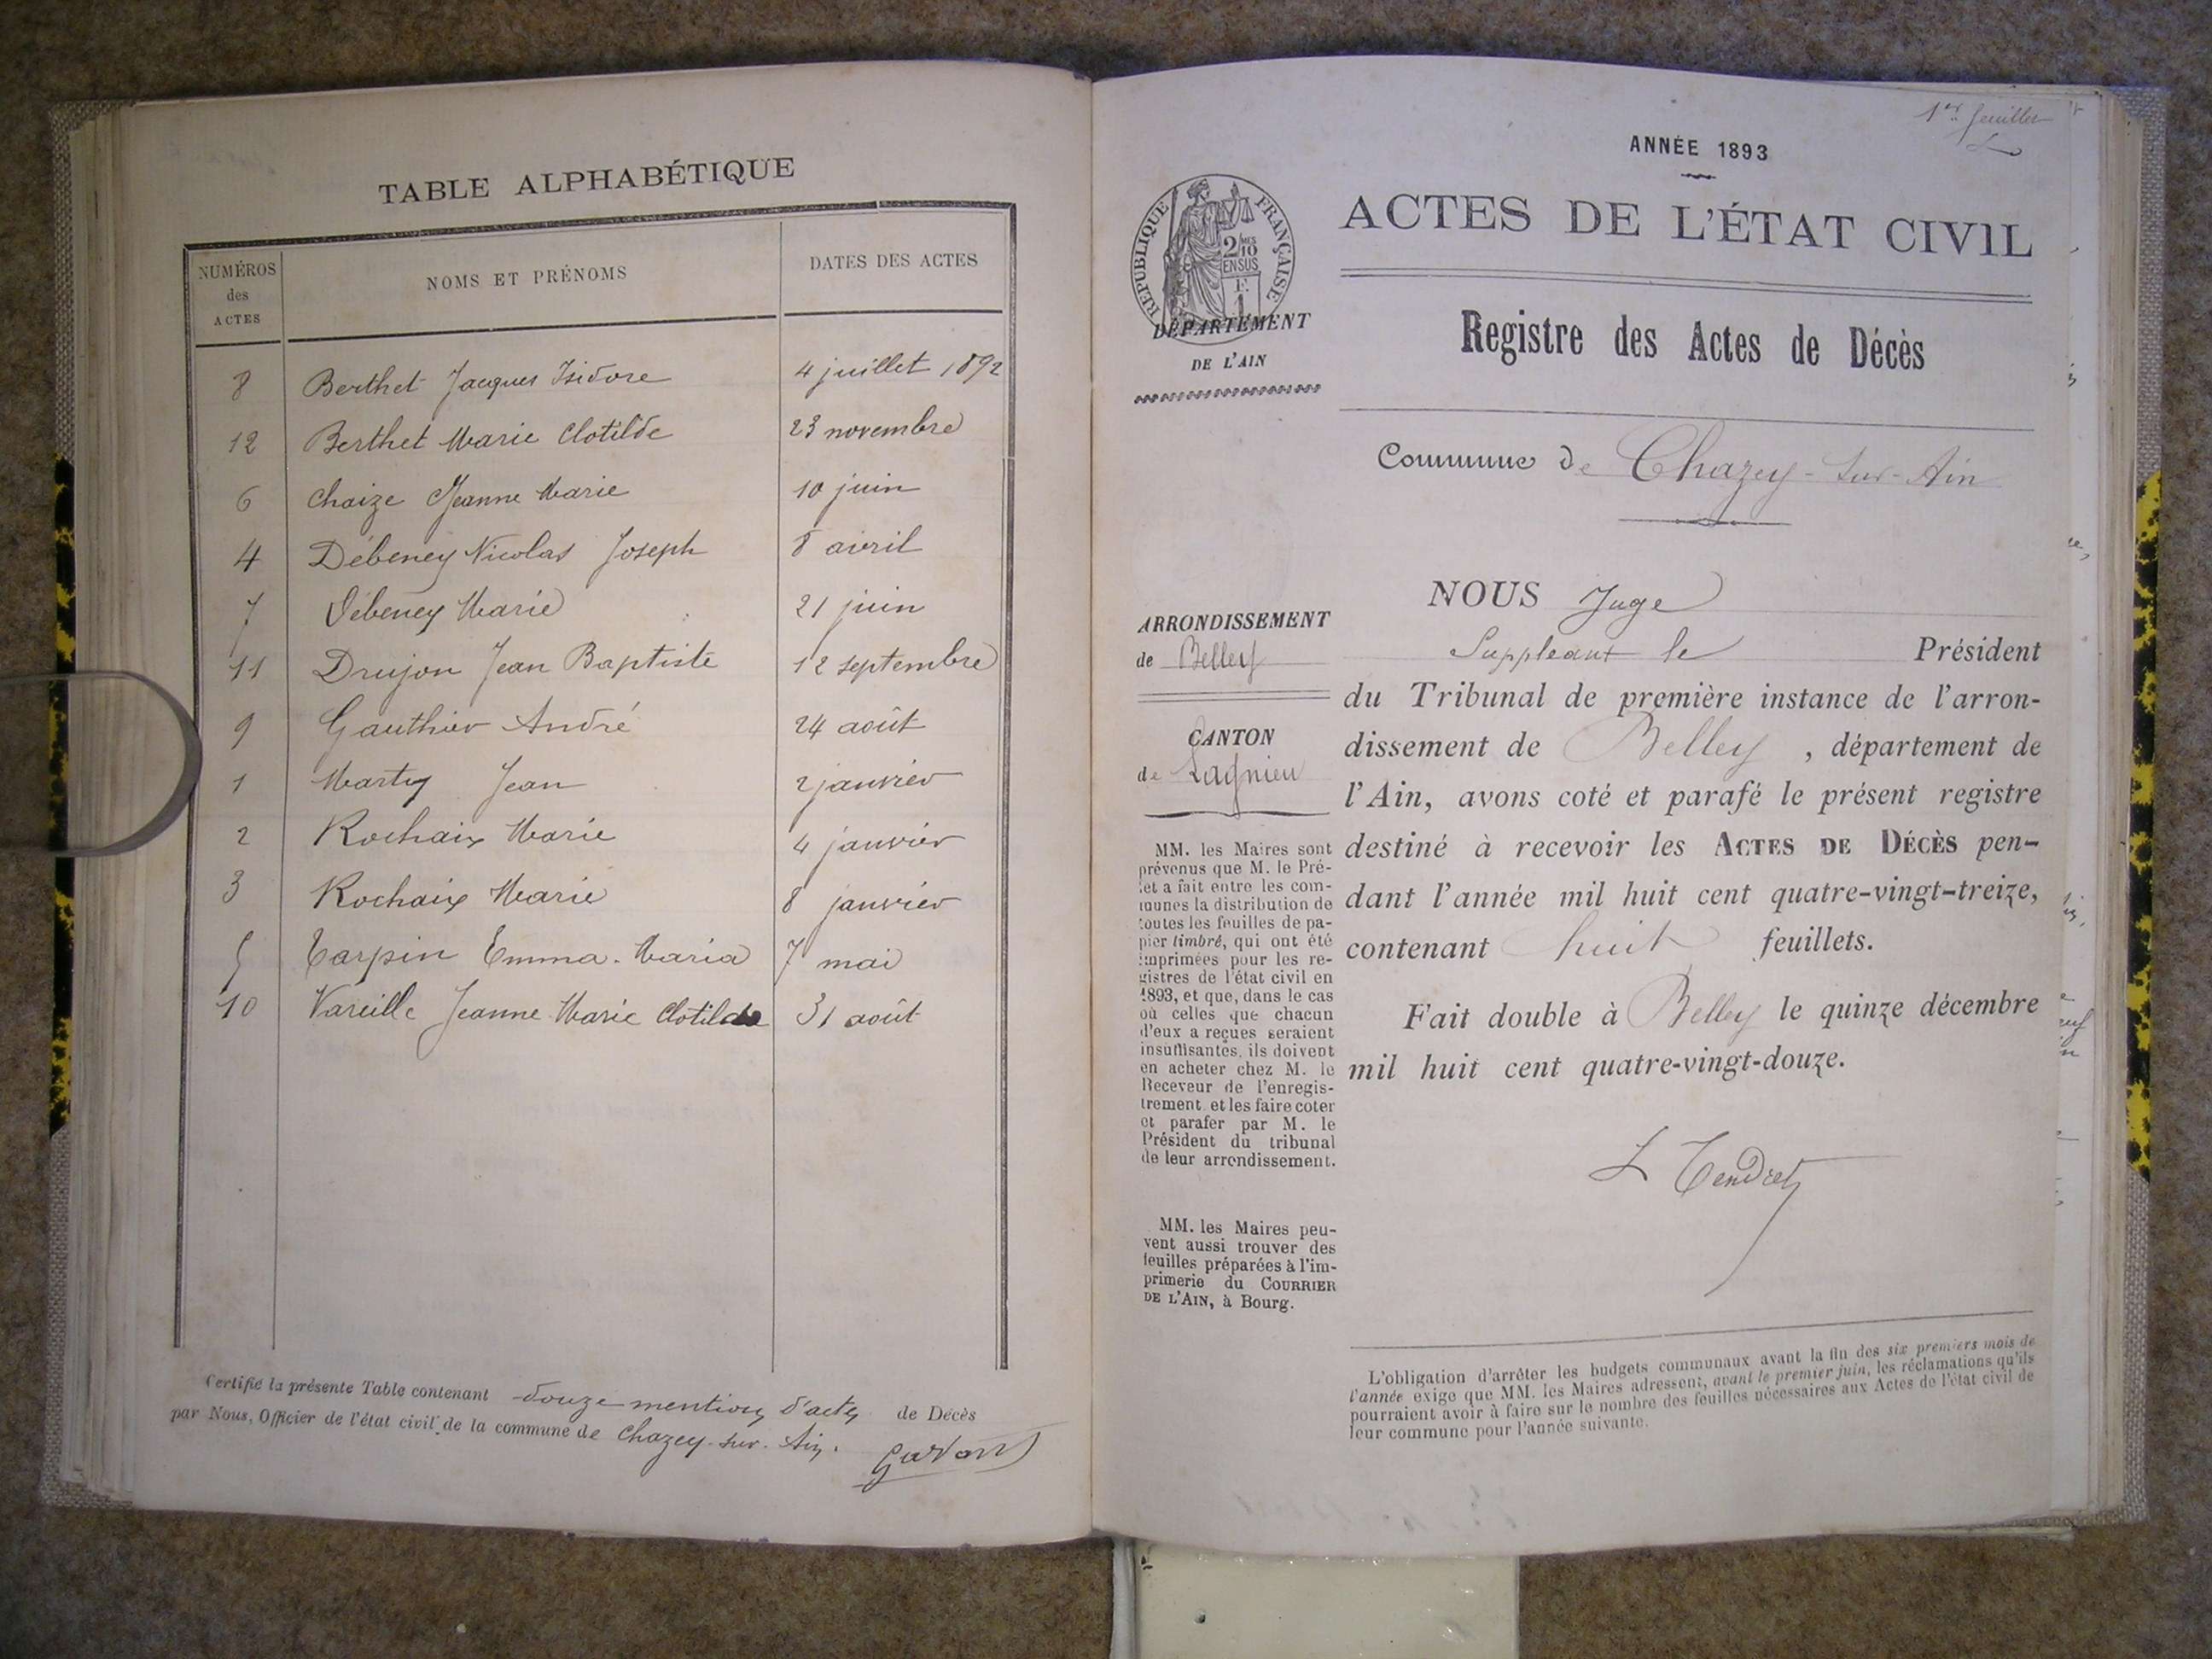 TABLE ALPHABÉTIQUE
NUMÉROS des ACTES NOMS ET PRÉNOMS DATES DES ACTES
8 Berthet Jacques Isidore 4 juillet 1892
12 Berthet Marie Clotilde 23 novembre
6 Chaize Jeanne Marie 10 juin
4 Débeney Nicolas Joseph 8 avril
7 Débeney Marie 21 juin
11 Drujon Jean Baptiste 12 septembre
9 Gauthier André 24 août
1 Marty Jean 2 janvier
2 Rochaix Marie 4 janvier
3 Rochaix Marie 8 janvier
5 Tarpin Emma Maria 7 mai
10 Vareille Jeanne Marie Clotilde 31 août
Certifié la présente Table contenant douze mentions d'actes de Décès
par Nous, Officier de l'état civil de la commune de Chazey-sur-Ain.
1er feuillet
ANNÉE 1893
ACTES DE L'ÉTAT CIVIL
RÉPUBLIQUE FRANÇAISE
2 MES 10
EN SUS
F. 1
DÉPARTEMENT
DE L'AIN
Registre des Actes de Décès
Commune de Chazey-sur-Ain
ARRONDISSEMENT
de Belley
CANTON
de Lagnieu
MM. les Maires sont
prévenus que M. le Pré-
fet a fait entre les com-
munes la distribution de
toutes les feuilles de pa-
pier timbré, qui ont été
imprimées pour les re-
gistres de l'état civil en
1893, et que, dans le cas
où celles que chacun
d'eux a reçues seraient
insuffisantes, ils doivent
en acheter chez M. le
Receveur de l'enregis-
trement et les faire coter
et parafer par M. le
Président du tribunal
de leur arrondissement.
MM. les Maires peu-
vent aussi trouver des
feuilles préparées à l'im-
primerie du COURRIER
DE L'AIN, à Bourg.
NOUS Juge
Suppléant le Président
du Tribunal de première instance de l'arron-
dissement de Belley, département de
l'Ain, avons coté et parafé le présent registre
destiné à recevoir les ACTES DE DÉCÈS pen-
dant l'année mil huit cent quatre-vingt-treize,
contenant huit feuillets.
Fait double à Belley le quinze décembre
mil huit cent quatre-vingt-douze.
L Tendret
L'obligation d'arrêter les budgets communaux avant la fin des six premiers mois de
l'année exige que MM. les Maires adressent, avant le premier juin, les réclamations qu'ils
pourraient avoir à faire sur le nombre des feuilles nécessaires aux Actes de l'état civil de
leur commune pour l'année suivante.